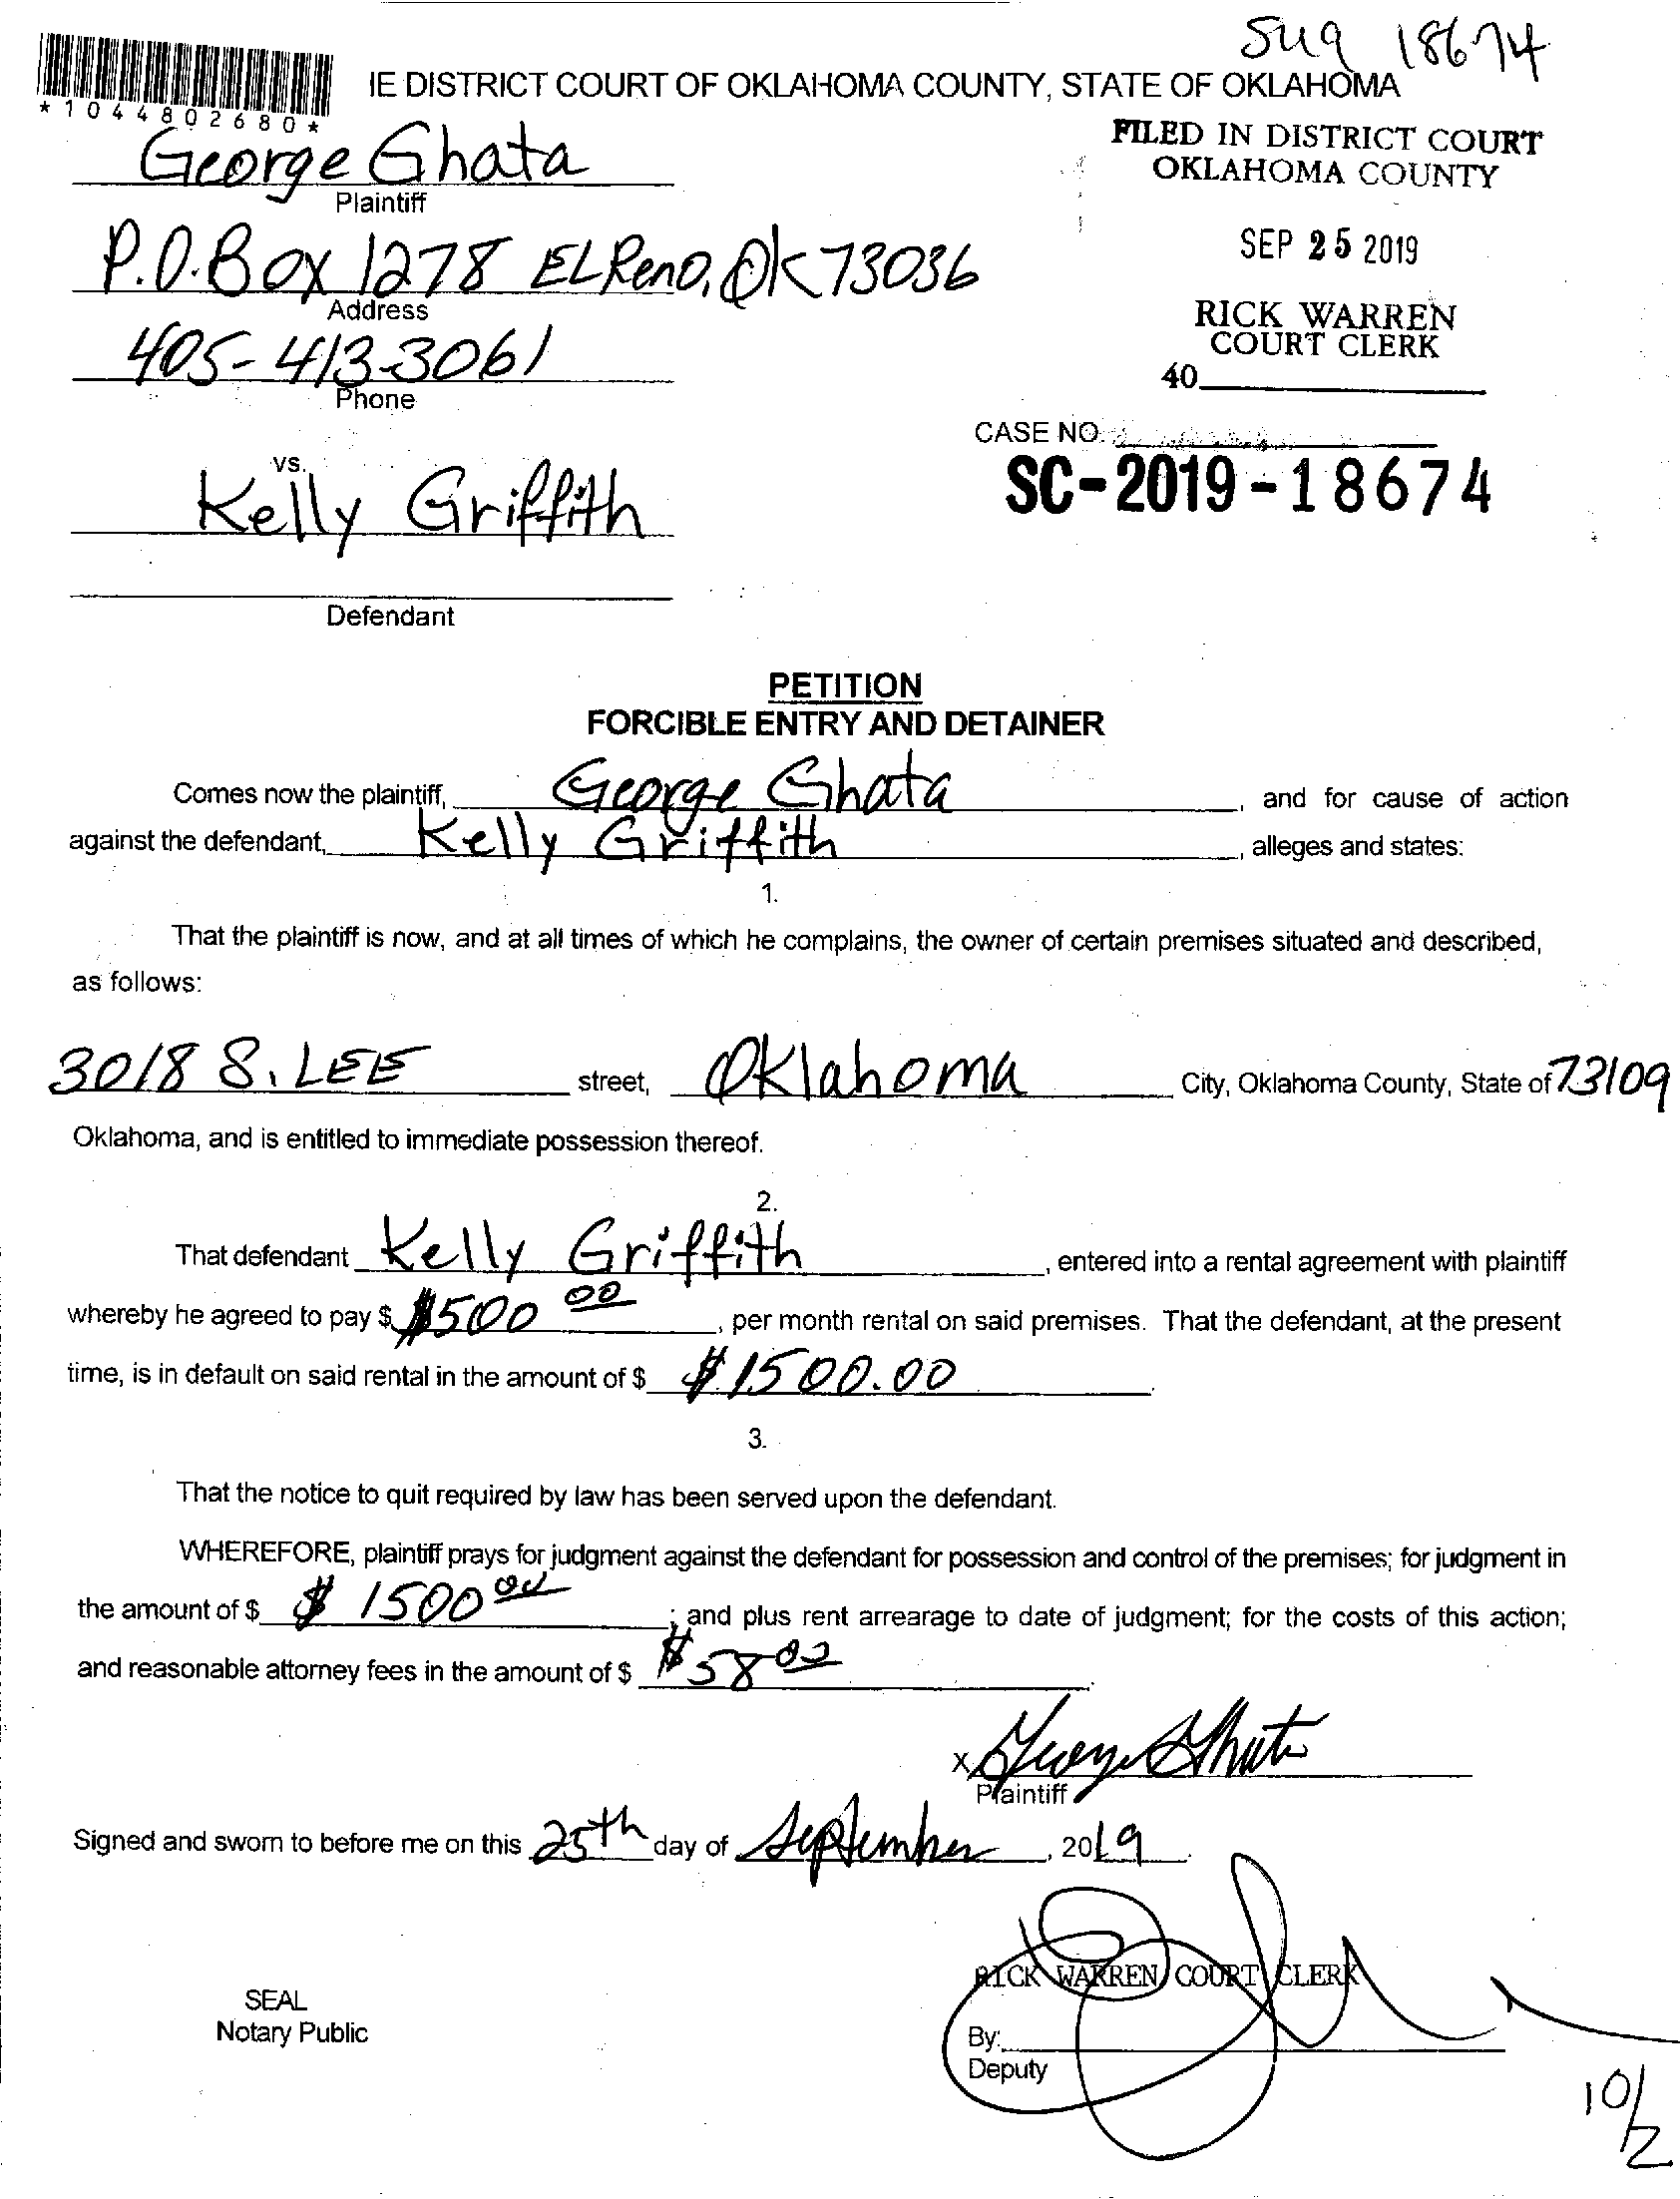 18674
IE DISTRICT COURT OF OKLAHOMA COUNTY, STATE OF OKLAHOMA
*1044802680*
FILED IN DISTRICT COURT
OKLAHOMA COUNTY
George Ghata
Plaintiff
SEP 25 2019
P.O. Box 1278 EL Reno, OK 73036
Address
RICK WARREN
COURT CLERK
405-413-3061
Phone
40
CASE NO.
SC-2019-18674
vs.
Kelly Griffith
Defendant
PETITION
FORCIBLE ENTRY AND DETAINER
Comes now the plaintiff, George Ghata, and for cause of action
against the defendant, Kelly Griffith, alleges and states:
1.
That the plaintiff is now, and at all times of which he complains, the owner of certain premises situated and described,
as follows:
3018 S. LEE street, Oklahoma City, Oklahoma County, State of 73109
Oklahoma, and is entitled to immediate possession thereof.
2.
That defendant Kelly Griffith, entered into a rental agreement with plaintiff
whereby he agreed to pay $ $500 00, per month rental on said premises. That the defendant, at the present
time, is in default on said rental in the amount of $ $1500.00.
3.
That the notice to quit required by law has been served upon the defendant.
WHEREFORE, plaintiff prays for judgment against the defendant for possession and control of the premises; for judgment in
the amount of $ $ 1500 00; and plus rent arrearage to date of judgment; for the costs of this action;
and reasonable attorney fees in the amount of $ $58 00.
x George Ghata
Plaintiff
Signed and sworn to before me on this 25th day of September, 2019.
RICK WARREN COURT CLERK
SEAL
Notary Public
By:
Deputy
10/2